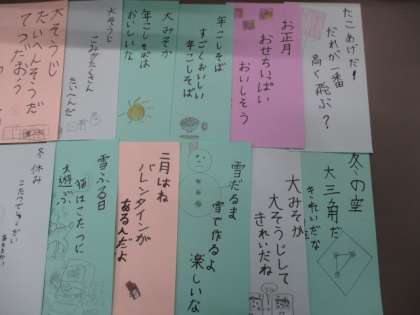 たこあげだ!
だれが一番
高く飛ぶ?
お正月
おせちいっぱい
おいしそう
年こしそば
すごくおいしい
年こしそば
大みそか
年こしそばは
おいしいな
大そうじ
ごみがたくさん
たいへんだ
大そうじ
たいへんそうだ
てつだおう?
冬の空
大三角だ
きれいだな
大みそか
大そうじして
きれいだね
雪だるま
雪で作るよ
楽しいな
二月はね
バレンタインが
あるんだよ
雪ふる日
猫はこたつに
犬遊ぶ
冬休み